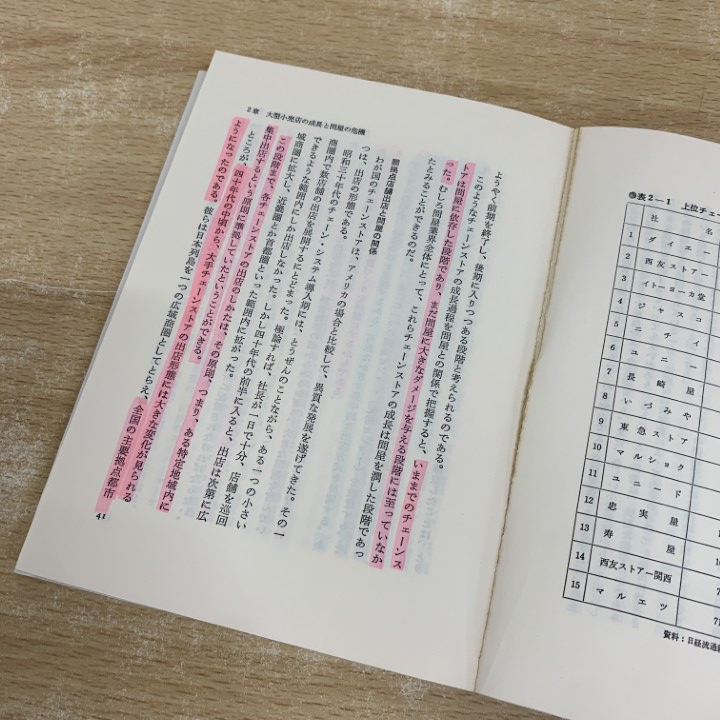 ●表2—1 上位チェー
社 名
1 ダイエー
2 西友ストアー
3 イトーヨーカ堂
4 ジャスコ
5 ニチイ
6 ユニー
7 長崎屋
8 いづみや
9 東急ストア
10 マルショク
11 ユニード
12 忠実屋
13 寿屋
14 西友ストアー関西
15 マルエツ
資料:日経流通
2章 大型小売店の成長と問屋の危機
ようやく前期を終了し、後期に入りつつある段階と考えられるのである。
このようなチェーンストアの成長過程を問屋との関係で把握すると、いままでのチェーンス
トアは問屋に依存した段階であり、まだ問屋に大きなダメージを与える段階には至っていなか
った。むしろ問屋業界全体にとって、これらチェーンストアの成長は問屋を潤した段階であっ
たとみることができるのだ。
拠点店舗出店と問屋の関係
わが国のチェーンストアは、アメリカの場合と比較して、異質な発展を遂げてきた。その一
つは、出店の形態である。
昭和三十年代のチェーン・システム導入期には、とうぜんのことながら、ある一つの小さい
商圏内で数店舗の出店を展開するにとどまった。極論すれば、社長が一日で十分、店舗を巡回
できるような範囲内にしか出店しなかった。しかし四十年代の前半に入ると、出店は次第に広
域商圏に拡大し、近畿圏とか首都圏といった範囲内に拡がった。
この段階まで、各チェーンストアの出店のしかたは、その原則、つまり、ある特定地域内に
集中出店するという原則に準拠していたということができる。
ところが、四十年代の中頃から、大手チェーンストアの出店形態には大きな変化が見られる
ようになったのである。彼らは日本列島を一つの広域商圏としてとらえ、全国の主要拠点都市
41